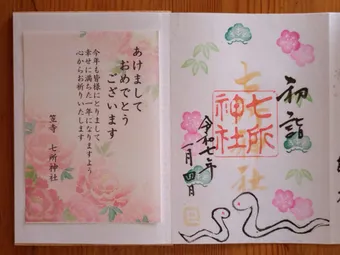 あけまして
おめでとう
ございます
今年も皆様にとりまして
幸せに満ちた一年になりますよう
心からお祈りいたします
笠寺 七所神社
初詣
七所神社
七所
神社
令和七年
一月四日